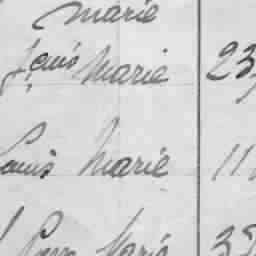 Marie
Louis Marie 23
Louis Marie 11
Marie 3